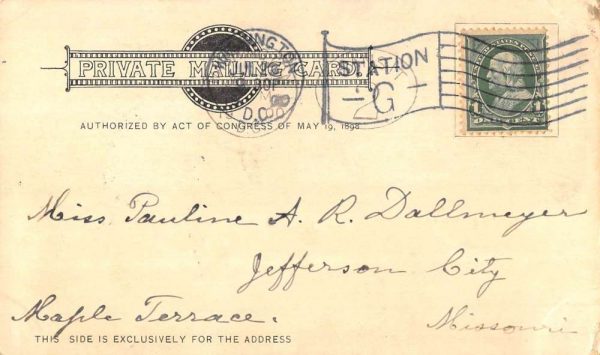 WASHINGTON
D.C.
STATION
G
PRIVATE MAILING CARD
1 1
ONE CENT
AUTHORIZED BY ACT OF CONGRESS OF MAY 19, 1898
Miss Pauline A. R. Dallmeyer
Jefferson City
Maple Terrace.
Missouri
THIS SIDE IS EXCLUSIVELY FOR THE ADDRESS